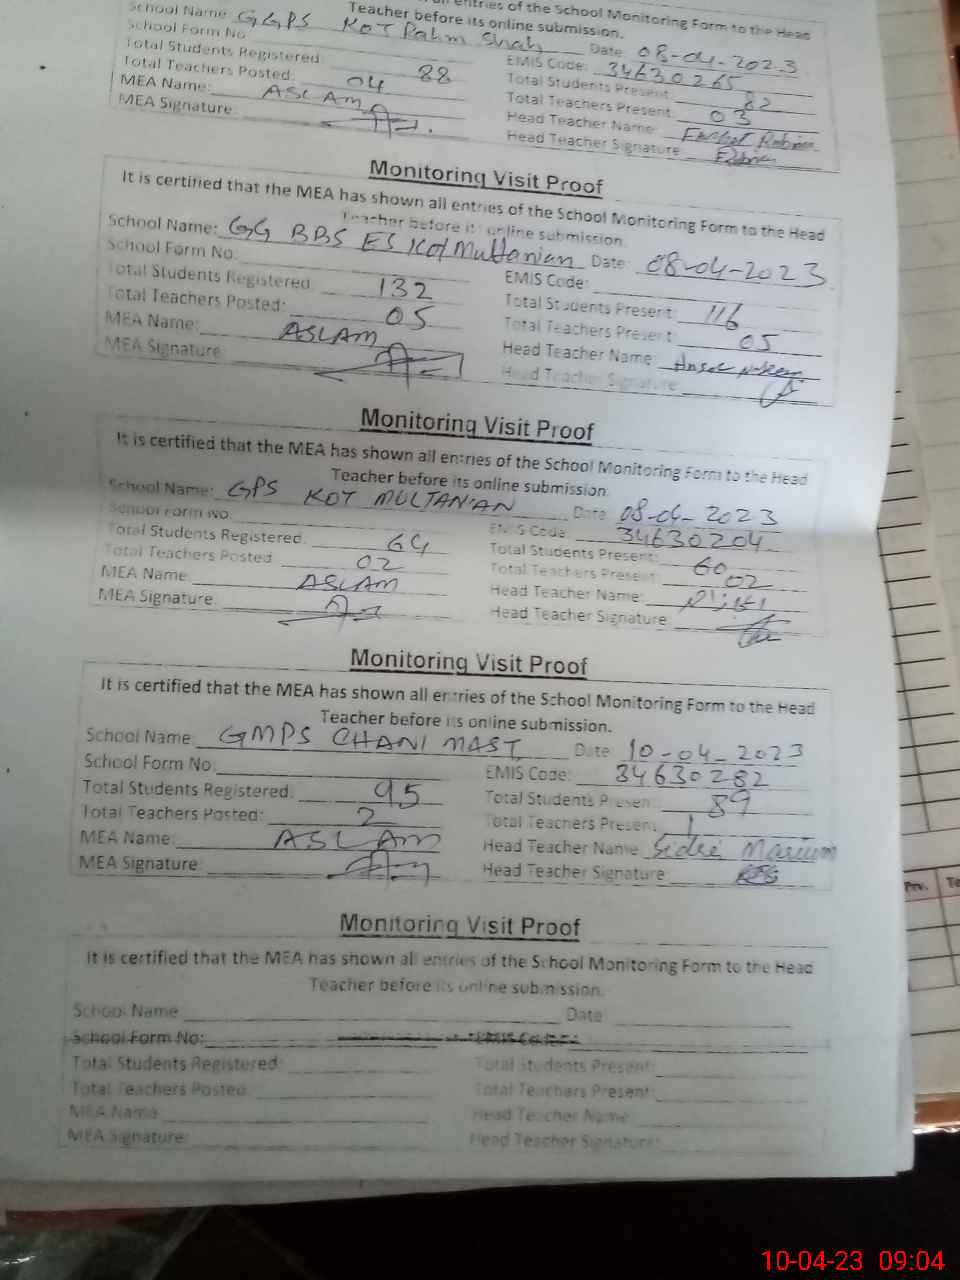 all entries of the School Monitoring Form to the Head
Teacher before its online submission.
School Name GGPS KOT Rahm Shah Date 08-04-2023
School Form No EMIS Code: 34630265
Total Students Registered 88 Total Students Present 82
Total Teachers Posted: 04 Total Teachers Present 03
MEA Name: ASLAM Head Teacher Name
MEA Signature: Head Teacher Signature
Monitoring Visit Proof
It is certified that the MEA has shown all entries of the School Monitoring Form to the Head
Teacher before its online submission.
School Name: GG BBS ES Kot Multanian Date: 08-04-2023
School Form No: EMIS Code:
Total Students Registered 132 Total Students Present: 116
Total Teachers Posted: 05 Total Teachers Present: 05
MEA Name: ASLAM Head Teacher Name:
MEA Signature Head Teacher Signature
Monitoring Visit Proof
It is certified that the MEA has shown all entries of the School Monitoring Form to the Head
Teacher before its online submission.
School Name: GPS KOT MULTANIAN Date 08-04-2023
School Form No. EMIS Code: 34630204
Total Students Registered: 64 Total Students Present: 60
Total Teachers Posted 02 Total Teachers Present 02
MEA Name: ASLAM Head Teacher Name:
MEA Signature: Head Teacher Signature
Monitoring Visit Proof
It is certified that the MEA has shown all entries of the School Monitoring Form to the Head
Teacher before its online submission.
School Name GMPS CHANI MAST Date 10-04-2023
School Form No: EMIS Code: 34630282
Total Students Registered: 95 Total Students Present: 89
Total Teachers Posted: 2 Total Teachers Present 1
MEA Name: ASLAM Head Teacher Name Sidra Marium
MEA Signature: Head Teacher Signature:
Monitoring Visit Proof
It is certified that the MEA has shown all entries of the School Monitoring Form to the Head
Teacher before its online submission.
School Name Date
School Form No:
Total Students Registered: Total Students Present:
Total Teachers Posted: Total Teachers Present:
MEA Name: Head Teacher Name:
MEA Signature: Head Teacher Signature:
Prv.
10-04-23 09:04